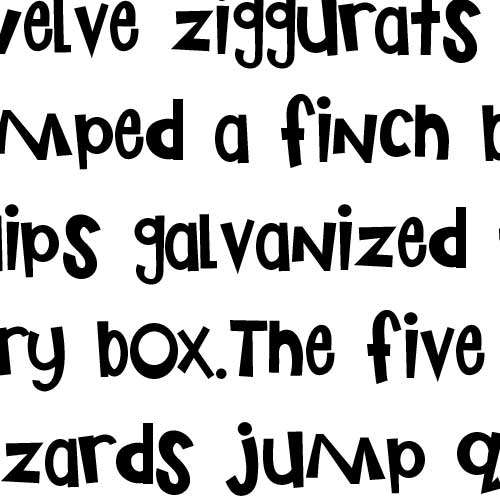 velve ziggurats
mped a finch b
lips galvanized
ry box.The five
zards jump q